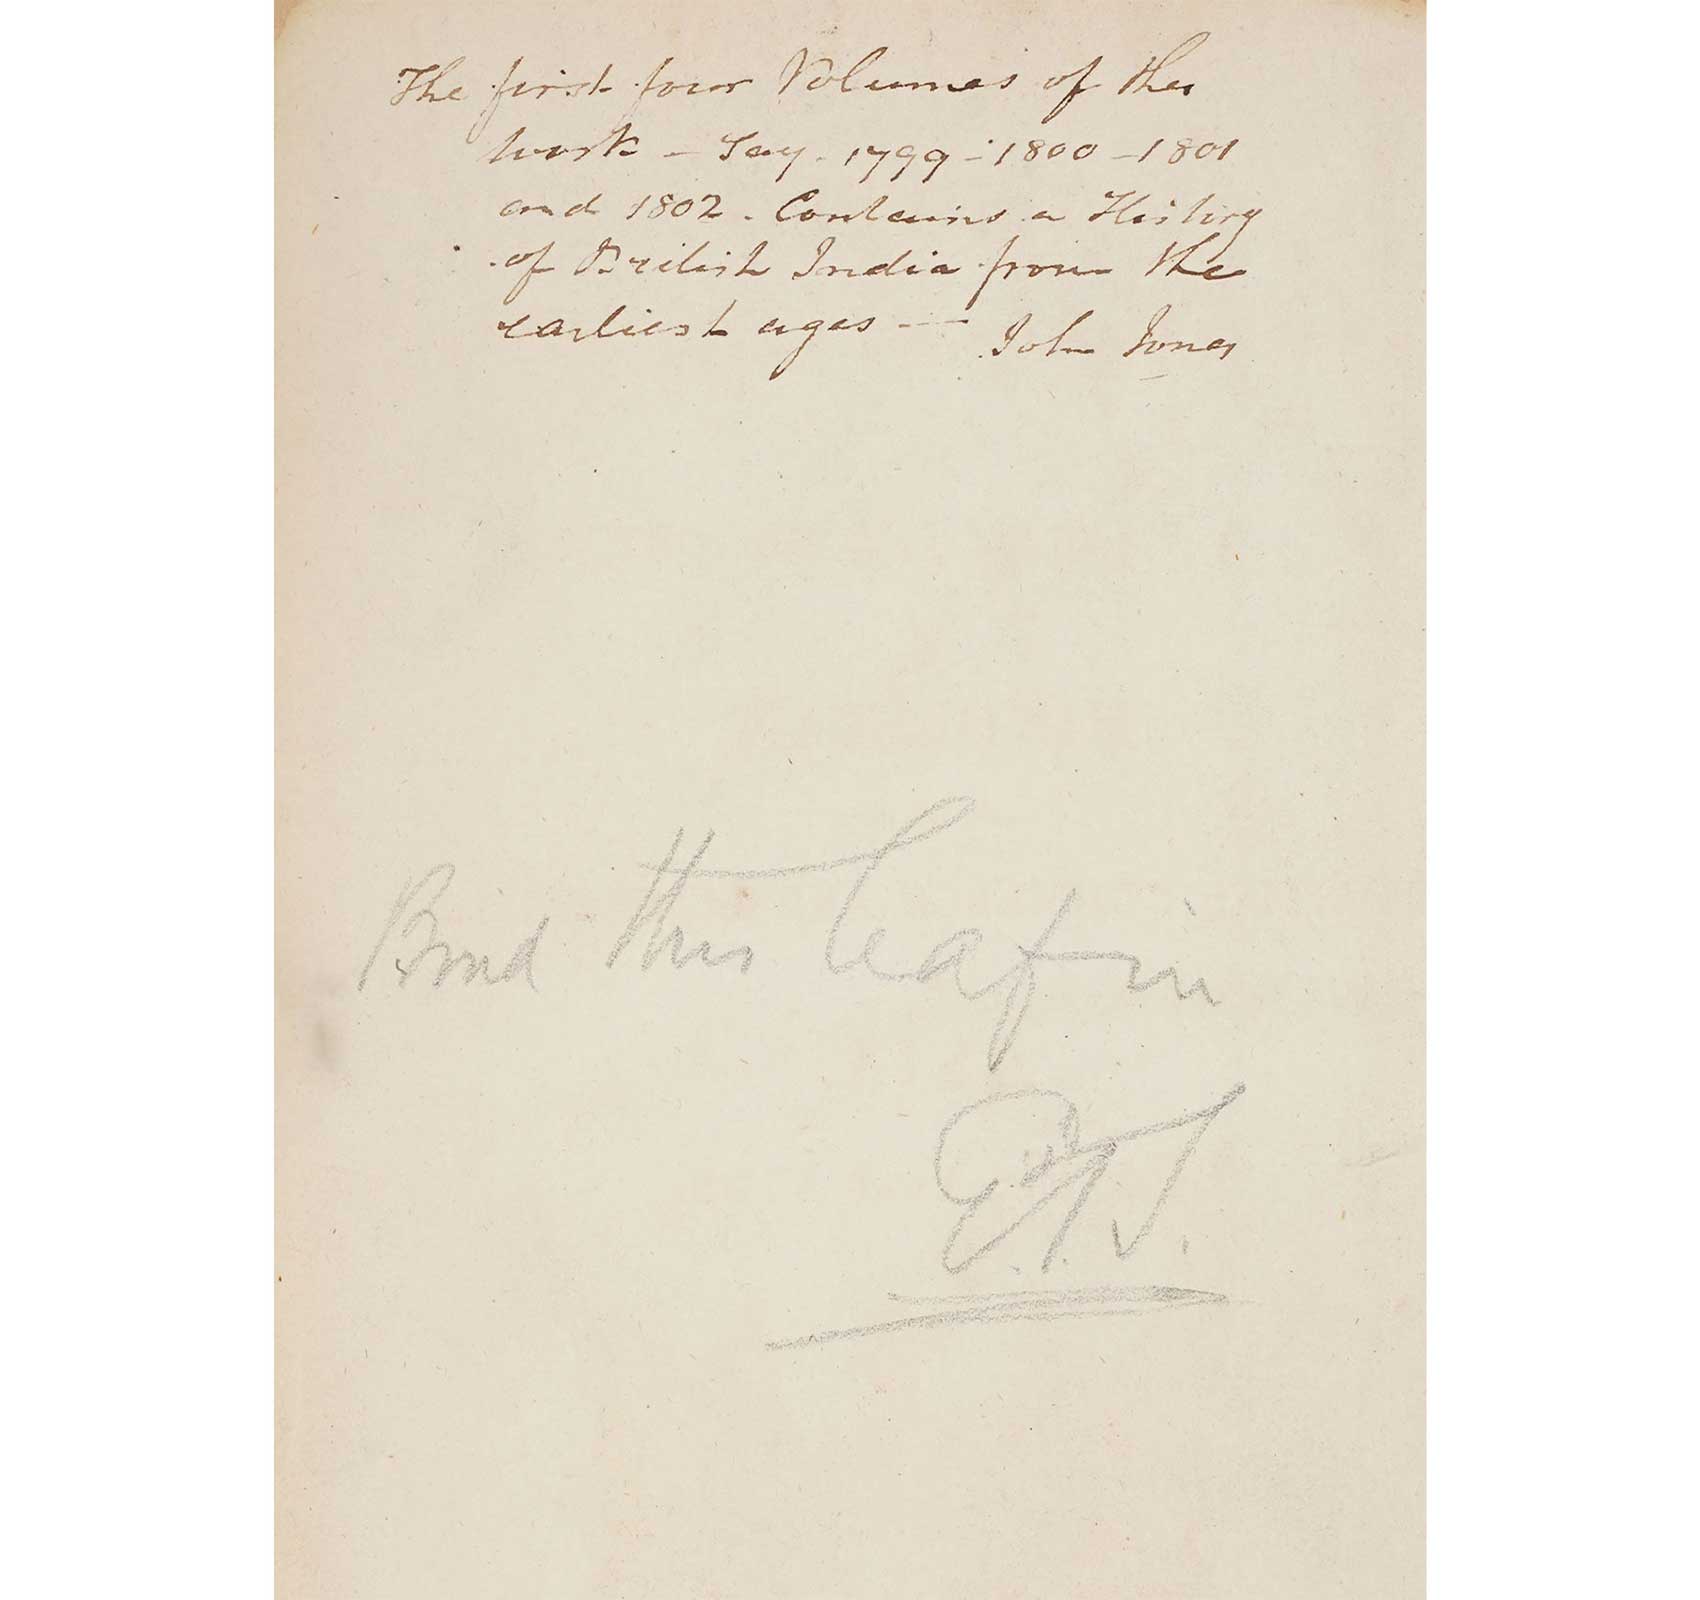 The first four Volumes of this
work – Say – 1799 – 1800 – 1801
and 1802 . Contains a History
of British India from the
earliest ages —
John Jones
Bind this leaf in
E.T.S.